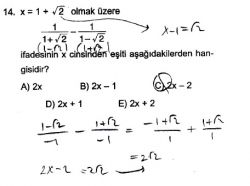 14. x = 1 + √2 olmak üzere
x-1=√2
1/(1+√2) - 1/(1-√2)
(1-√2) (1+√2)
ifadesinin x cinsinden eşiti aşağıdakilerden han-
gisidir?
A) 2x B) 2x – 1 C) 2x – 2
D) 2x + 1 E) 2x + 2
(1-√2)/-1 - (1+√2)/-1 = (-1+√2)/1 + (1+√2)/1
= 2√2
2x-2 = 2√2